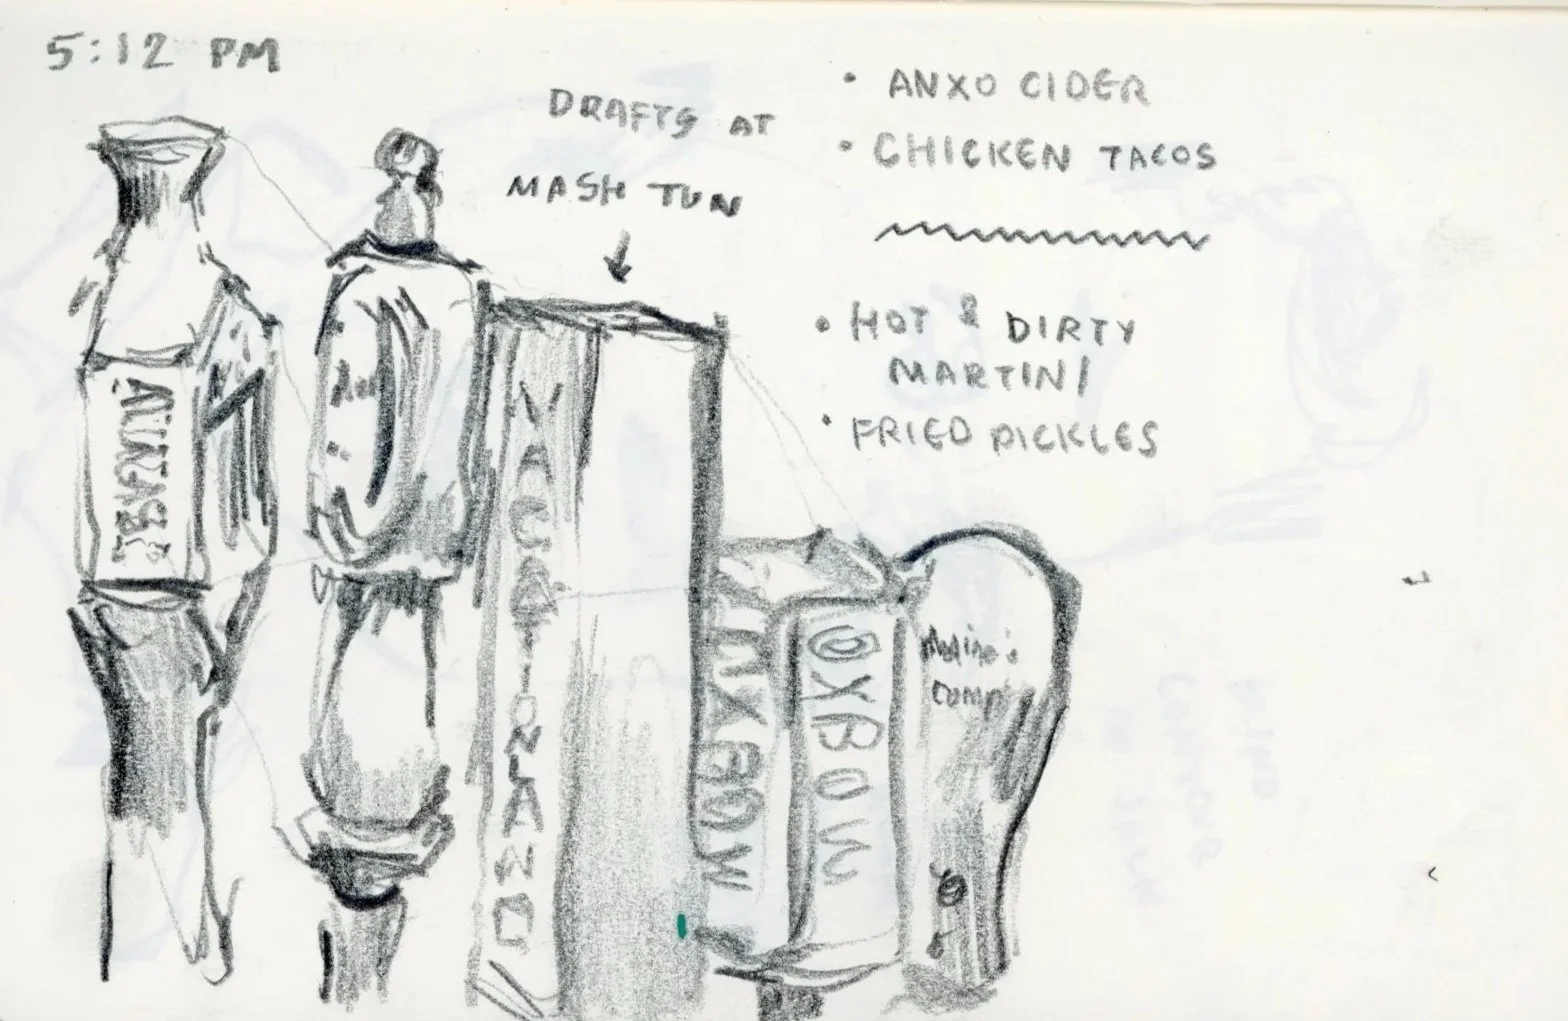 5:12 PM
DRAFTS AT
MASH TUN
• ANXO CIDER
• CHICKEN TACOS
• HOT & DIRTY
MARTINI
• FRIED PICKLES
VACATIONLAND
OXBOW
OXBOW